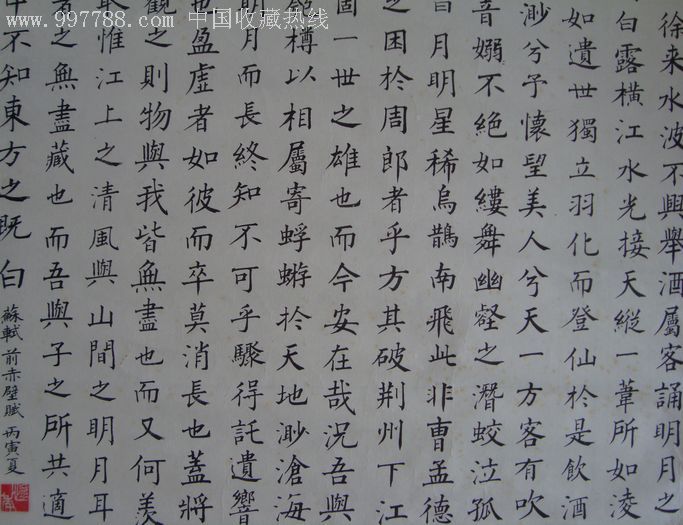 www.997788.com 中国收藏热线
徐来水波不興舉酒屬客誦明月之
白露橫江水光接天縱一葦所如凌
如遺世獨立羽化而登仙於是飲酒
渺兮予懷望美人兮天一方客有吹
音嫋不絕如縷舞幽壑之潛蛟泣孤
曰月明星稀烏鵲南飛此非曹孟德
之困於周郎者乎方其破荆州下江
固一世之雄也而今安在哉況吾與
匏樽以相屬寄蜉蝣於天地渺滄海
明月而長終知不可乎驟得託遺響
也盈虛者如彼而卒莫消長也蓋將
觀之則物與我皆無盡也而又何羨
取惟江上之清風與山間之明月耳
者之無盡藏也而吾與子之所共適
中不知東方之既白
蘇軾前赤壁賦丙寅夏